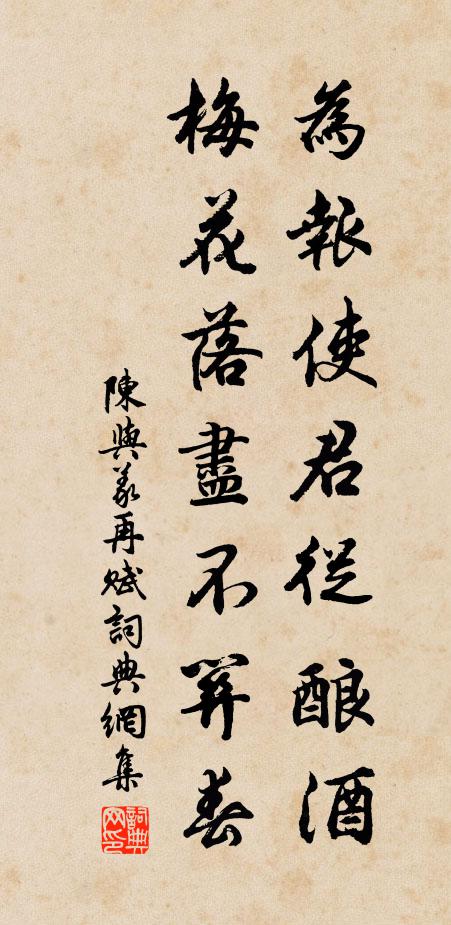 為報使君從酿酒
梅花落盡不算春
陳與義再赋詞典網集
詞典網印